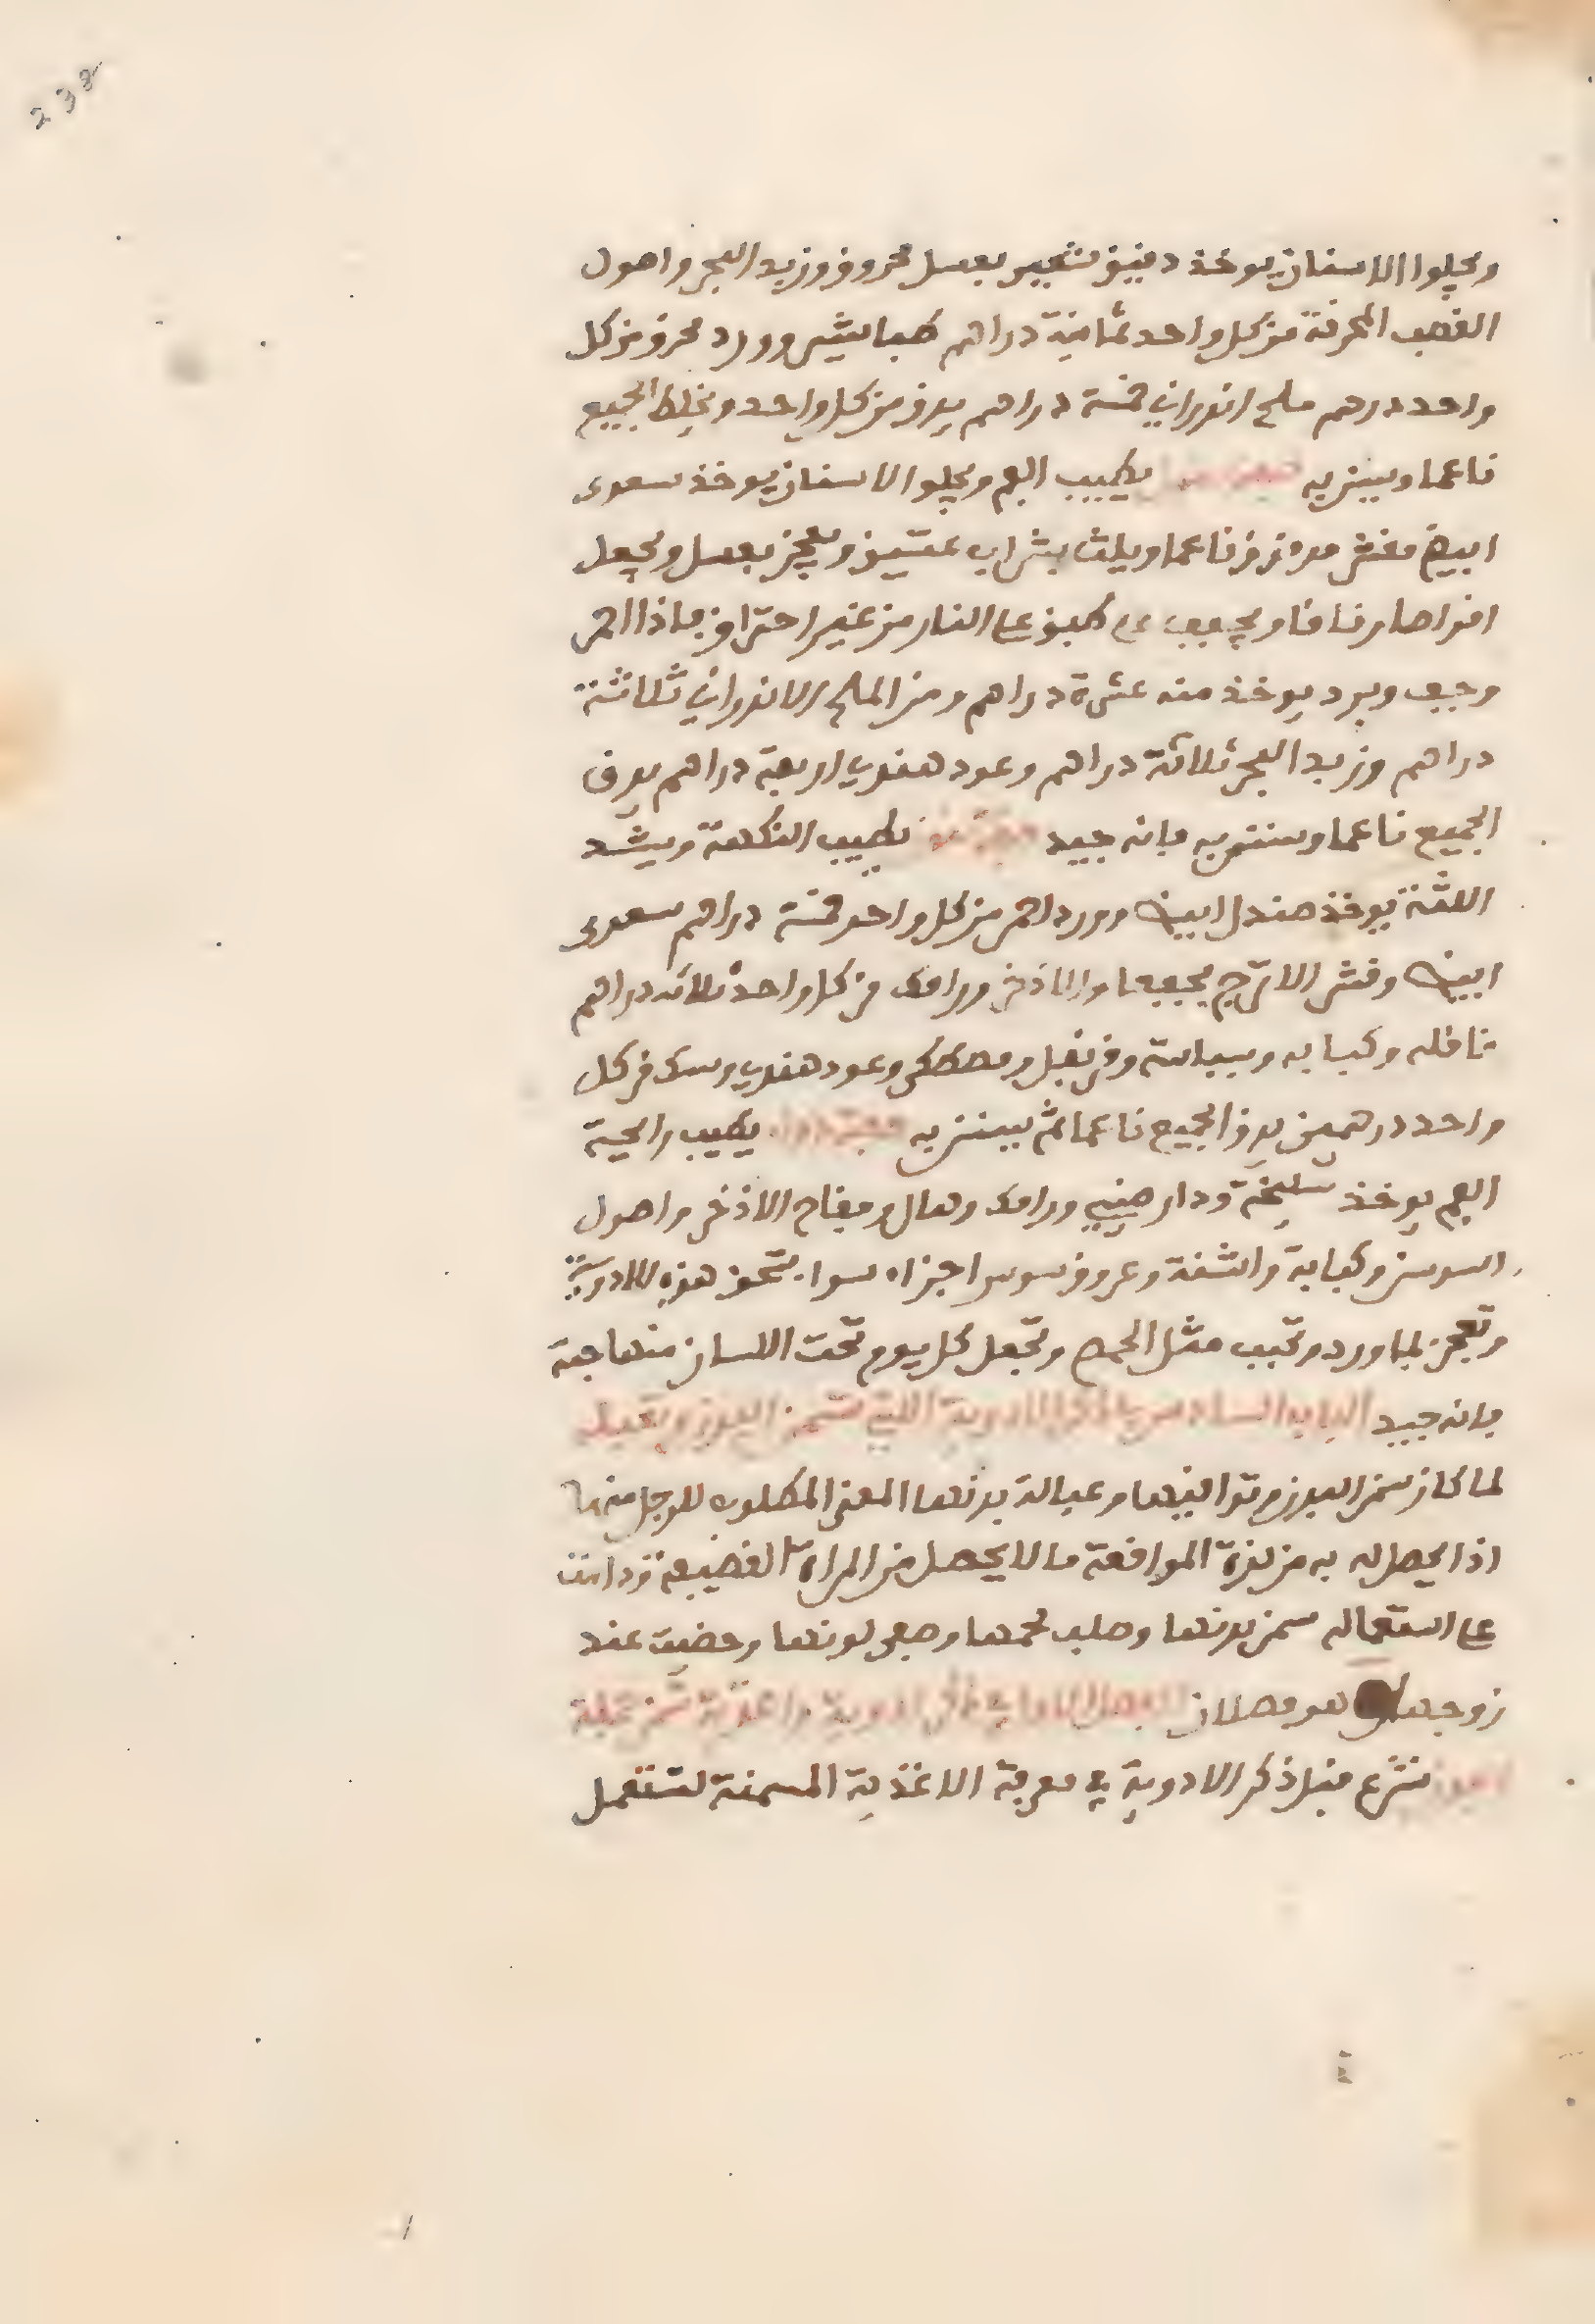 238
ويجلوا الاسنان يوخذ دقيق شعير بعسل محروق وزبد البحر واصول
القصب المحرقة من كل واحد ثمانية دراهم طباشير وورد محرق من كل
واحد درهم ملح اندراني خمسة دراهم يدق من كل واحد ويخلط الجميع
ناعما ويستن به يطيب الفم ويجلو الاسنان يوخذ سعدى
ابيض مقشر مدقوق ناعما ويلث بشراب عتيق ويعجن بعسل ويجعل
اقراصا رقاقا ويجفف على طبق على النار من غير احتراق فاذا احمر
وجف وبرد يوخذ منه عشرة دراهم ومن الملح الاندراني ثلاثة
دراهم وزبد البحر ثلاثة دراهم وعود هندي اربعة دراهم يدق
الجميع ناعما ويستن به فانه جيد يطيب النكهة ويشد
اللثة يوخذ صندل ابيض وورد احمر من كل واحد خمسة دراهم سعدى
ابيض وقشر الاترج مجففا والاذخر ورامك من كل واحد ثلاثة دراهم
قاقله وكبابه وبسباسة وقرنفل ومصطكى وعود هندي وسك من كل
واحد درهمين يدق الجميع ناعما ثم يستن به صفة دواء يطيب رايحة
الفم يوخذ سليخة ودار صيني ورامك وهال وفقاح الاذخر واصول
السوسن وكبابة واشنة وعروق سوس اجزاء سواء تسحق هذه الادوية
وتعجن بماورد وتحبب مثل الحمص وتجعل كل يوم تحت اللسان منها حبة
فانه جيد الباب السادس في ذكر الادوية التي تسمن البدن وتعبله
لما كان سمن البدن وتوافيها وعبالة بدنها المعنى المطلوب للرجل منها
اذا يحصل له به من لذة المواقعة ما لا يحصل من المراة القضيفة
على استعماله سمن بدنها وصلب لحمها وصفى لونها وحضيت عند
زوجها وهو فصلان الفصل الاول في ذكر ادوية واغذية تسمن جملة
البدن نشرع قبل ذكر الادوية في معرفة الاغذية المسمنة لتستعمل